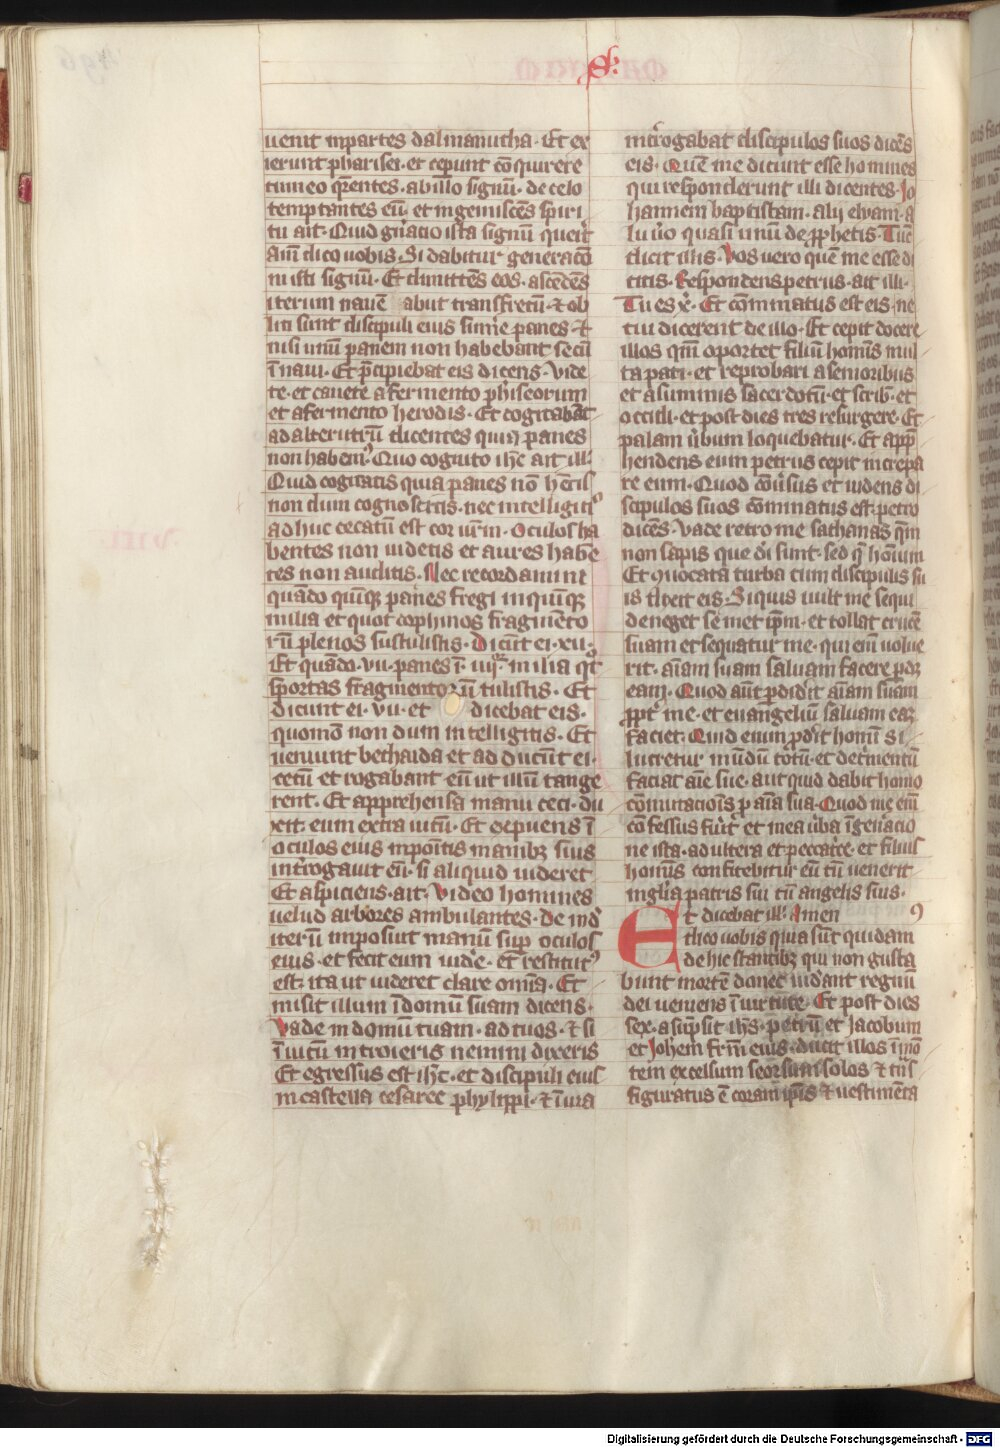 S.
uenit in partes dalmanutha. Et ex
ierunt pharisei. et ceperunt cōquirere
cum eo q̄rentes. ab illo signū. de celo
temptantes eū. et ingemiscēs spiri
tu ait. Quid gn̄acio ista signū querit
Am̄ dico uobis. Si dabitur generacō
ni isti signū. Et dimittēs eos. ascēdēs
iterum nauē abiit transfretū. et ob
liti sunt discipuli eius sūm̄e panes. et
nisi unū panem non habebant secū
ī naui. Et p̄cipiebat eis dicens. Vide
te. et cauete a fermento phīseorum
et a fermento herodis. Et cogitabāt
ad alterutrū dicentes quia panes
non habem⁹. Quo cognito ih̄c ait ill̄.
Quid cogitatis quia panes nō hētis
non dum cognoscitis. nec intelligitis
adhuc cecatū est cor ur̄m. Oculos ha
bentes non uidetis et aures habē
tes non auditis. Nec recordamini
quādo quīq; panes fregi in quīq;
milia et quot cophinos fragmēto
rū plenos sustulistis. Dicūt ei. xii.
Et quādo. vii. panes ī. iiij. milia qt̄
sportas fragmentorū tulistis. Et
dicunt ei. vii. et dicebat eis.
quomō non dum intelligitis. Et
ueniunt bethaida et adducūt ei.
cecū et rogabant eū ut illū tange
rent. Et apprehensa manu ceci. du
xit. eum extra uicū. Et expuens ī
oculos eius inpoītis manibꝫ suis
int̄rogauit eū. si aliquid uideret
Et aspiciens. ait. Video homines
uelud arbores ambulantes. De ind̄
iterū imposuit manū sup̄ oculos
eius. et fecit eum uid̄e. et restitut⁹
est. ita ut uideret clare om̄ia. Et
misit illum ī domū suam dicens.
Vade in domū tuam. ad tuos. et si
ī uicū introieris nemini dixeris
Et egressus est ih̄c. et discipuli eius
in castella cesaree phylippi. et ī uia
int̄rogabat discipulos suos dicēs
eis. Quē me dicunt esse homines
qui responderunt illi dicentes. Jo
hannem baptistam. alij elyam. a
lii ūo quasi unū de ꝓphetis. Tūc
dicit illis. Vos uero quē me esse di
citis. Respondens petrus. ait illi.
Tu es xp̄. Et cōminatus est eis. ne
cui dicerent de illo. Et cepit docere
illos qm̄ oportet filiū homīs mul
ta pati. et reprobari a senioribus
et a summis sacerdotū. et scrib̄. et
occidi. et post dies tres resurgere. Et
palam ūbum loquebatur. Et app̄
hendens eum petrus cepit increpa
re eum. Quod cōūsus et uidens di
scipulos suos cōminatus est. petro
dicēs. Vade retro me sathanas qm̄
non sapis que dī sunt. sed q̄ hoīum
Et ꝯuocata turba cum discipulis su
is dixit eis. Siquis uult me sequi
deneget se met ipm̄. et tollat crucē
suam et sequatur me. qui em̄ uolue
rit. aīam suam saluam facere pdꝫ
eam. Quod aūt p̄did̄it aīam suam
ꝓpt̄ me. et euangeliū saluam eaꝫ
faciet. Quid enim ꝓd̄it homī si
lucretur mūdū totū. et det̄mentū
faciat aīe sue. aut quid dabit homo
cōmutacioīs p aīa sua. Quod me em̄
cōfessus fūit̄ et mea ūba ī gen̄acio
ne ista. adultera et peccatc̄e. et filius
homīs confitebitur eū cū uenerit
in glīa patris sui cū angelis suis.
Et dicebat ill̄. Amen
dico uobis quia sūt quidam
de hic stantibꝫ qui non gusta
bunt mortē donec uid̄ant regnū
dei ueniens ī uirtute. Et post dies
sex. asūpsit ih̄s. petrū et Jacobum
et Joh̄em fr̄m eius. ducit illos ī mō
tem excelsum seorsum solos et tn̄s
figuratus ē coram ip̄is et uestimēta
Digitalisierung gefördert durch die Deutsche Forschungsgemeinschaft - DFG